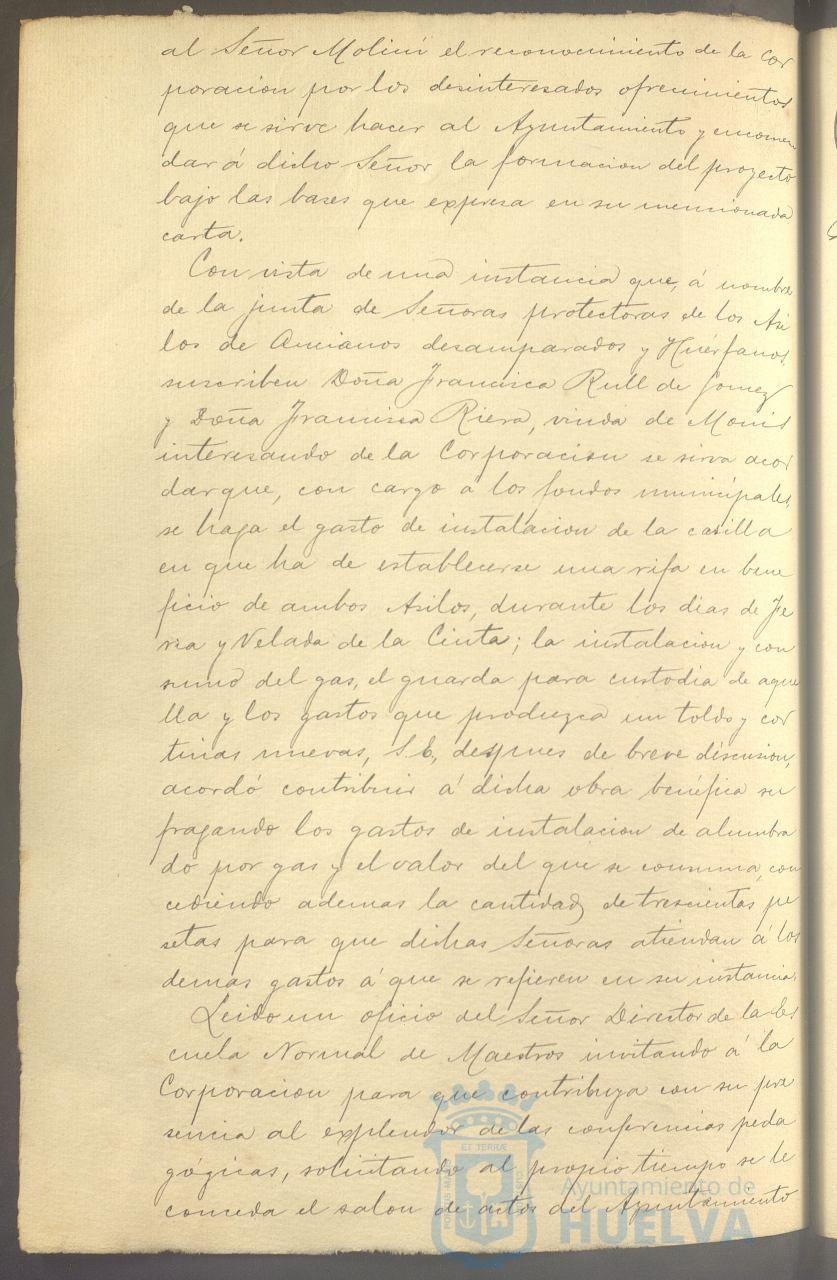 al Señor Molini el reconocimiento de la cor
poracion por los desinteresados ofrecimientos
que se sirve hacer al Ayuntamiento y encomen
dar á dicho Señor la formacion del proyecto
bajo las bases que expresa en su mencionada
carta.
Con vista de una instancia que, á nombre
de la junta de Señoras protectoras de los Asi
los de Ancianos desamparados y Huérfanos,
suscriben Doña Francisca Rull de Gomez
y Doña Francisca Riera, viuda de
interesando de la Corporacion se sirva acor
dar que, con cargo á los fondos municipales,
se haga el gasto de instalacion de la casilla
en que ha de establecerse una rifa en bene
ficio de ambos Asilos, durante los dias de Fe
ria y Velada de la Cinta; la instalacion y con
sumo del gas, el guarda para custodia de aque
lla y los gastos que produzca un toldo y cor
tinas nuevas, S.E, despues de breve discusion,
acordó contribuir á dicha obra benéfica su
fragando los gastos de instalacion de alumbra
do por gas y el valor del que se consuma, con
cediendo ademas la cantidad de trescientas pe
setas para que dichas Señoras atiendan á los
demas gastos á que se refieren en su instancia.
Leido un oficio del Señor Director de la Es
cuela Normal de Maestros invitando á la
Corporacion para que contribuya con su pre
sencia al explendor de las conferencias peda
gógicas, solicitando al propio tiempo se le
conceda el salon de actos del Ayuntamiento
ET TERRÆ
Ayuntamiento de
HUELVA